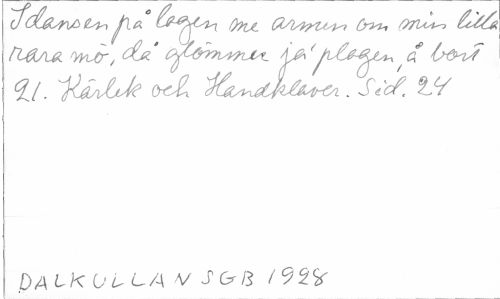 I dansen på lagen me armen om min lilla
rara mö, då glömmer ja' plagen, å bort
21. Kärlek och Handklaver. Sid. 24
DALKULLAN SGB 1928